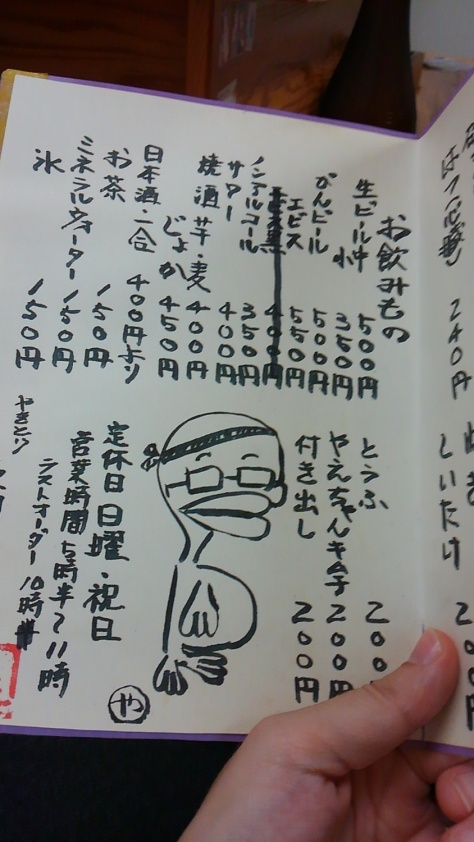 しいたけ 200円
お飲みもの
生ビール中 500円
小 350円
びんビール 500円
エビス 550円
ノンアルコール 350円
サワー 400円
焼酒 芋・麦 400円
じょか 450円
日本酒・一合 400円より
お茶 150円
ミネラルウォーター 150円
氷 150円
とうふ 200
やえちゃんキムチ 200円
付き出し 200円
や
定休日 日曜・祝日
営業時間 5時半〜11時
ラストオーダー 10時半
やきとり